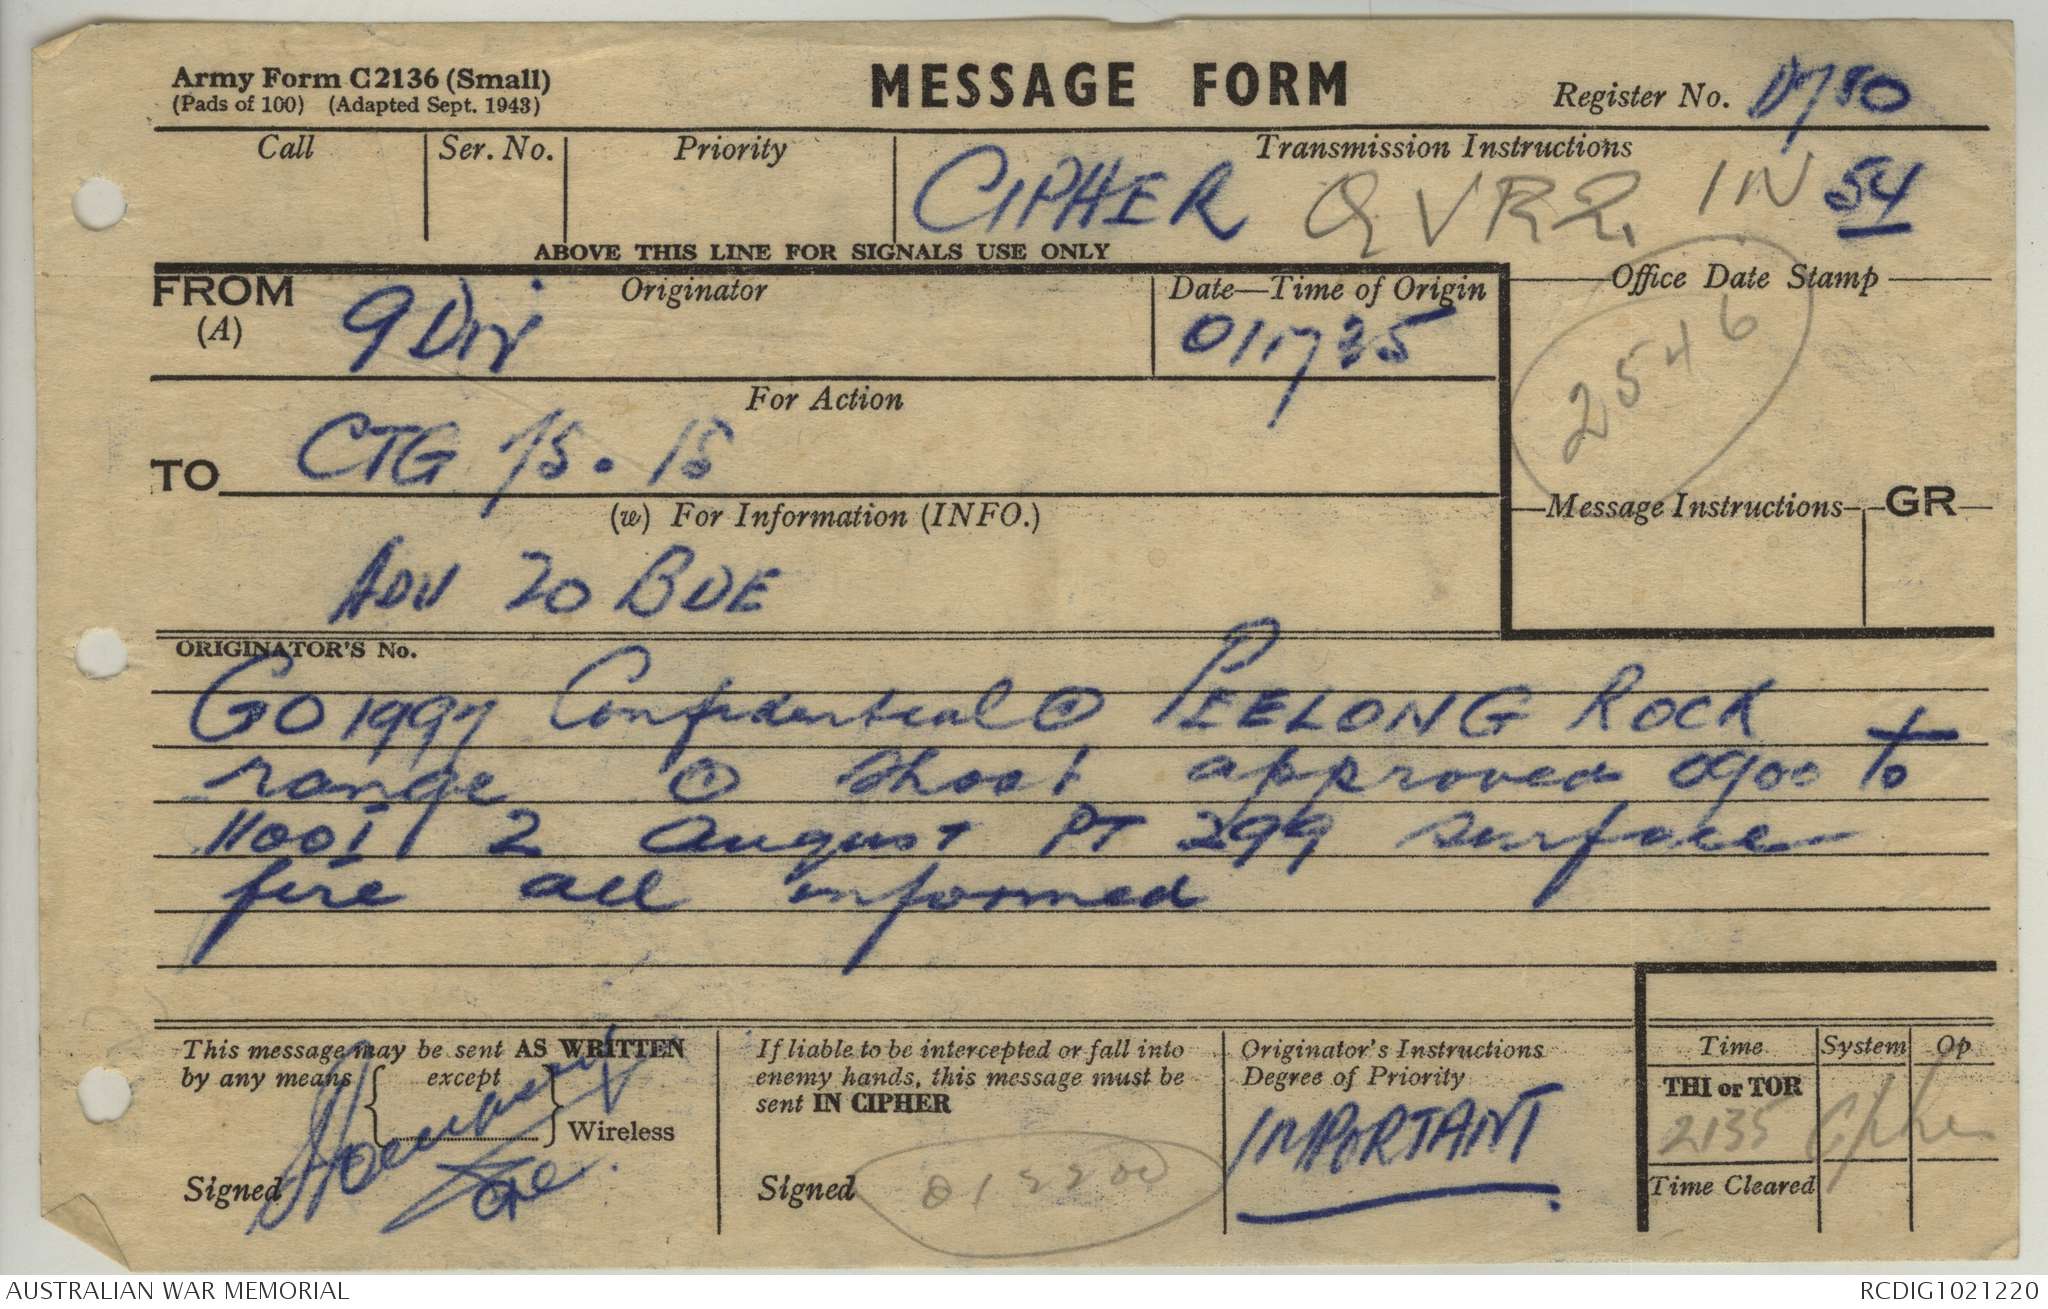 Army Form C2136 (Small)
(Pads of 100) (Adapted Sept. 1943)
MESSAGE FORM
Register No. D780
Call
Ser. No.
Priority
Transmission Instructions
CIPHER QVR2. IN 54
ABOVE THIS LINE FOR SIGNALS USE ONLY
FROM
(A)
Originator
9 Div
Date—Time of Origin
011735
Office Date Stamp
2546
For Action
TO
CTG 75.15
(w) For Information (INFO.)
ADV 20 BDE
Message Instructions
GR
ORIGINATOR'S No.
GO1997 Confidential ⊙ PEELONG ROCK
range ⊙ shoot approved 0900 to
1100I 2 August PT 299 surface
fire all informed
This message may be sent AS WRITTEN
by any means
except
Wireless
Signed
If liable to be intercepted or fall into
enemy hands, this message must be
sent IN CIPHER
Signed
012200
Originator's Instructions
Degree of Priority
IMPORTANT
Time System Op
THI or TOR
2135 Cipher
Time Cleared
AUSTRALIAN WAR MEMORIAL
RCDIG1021220